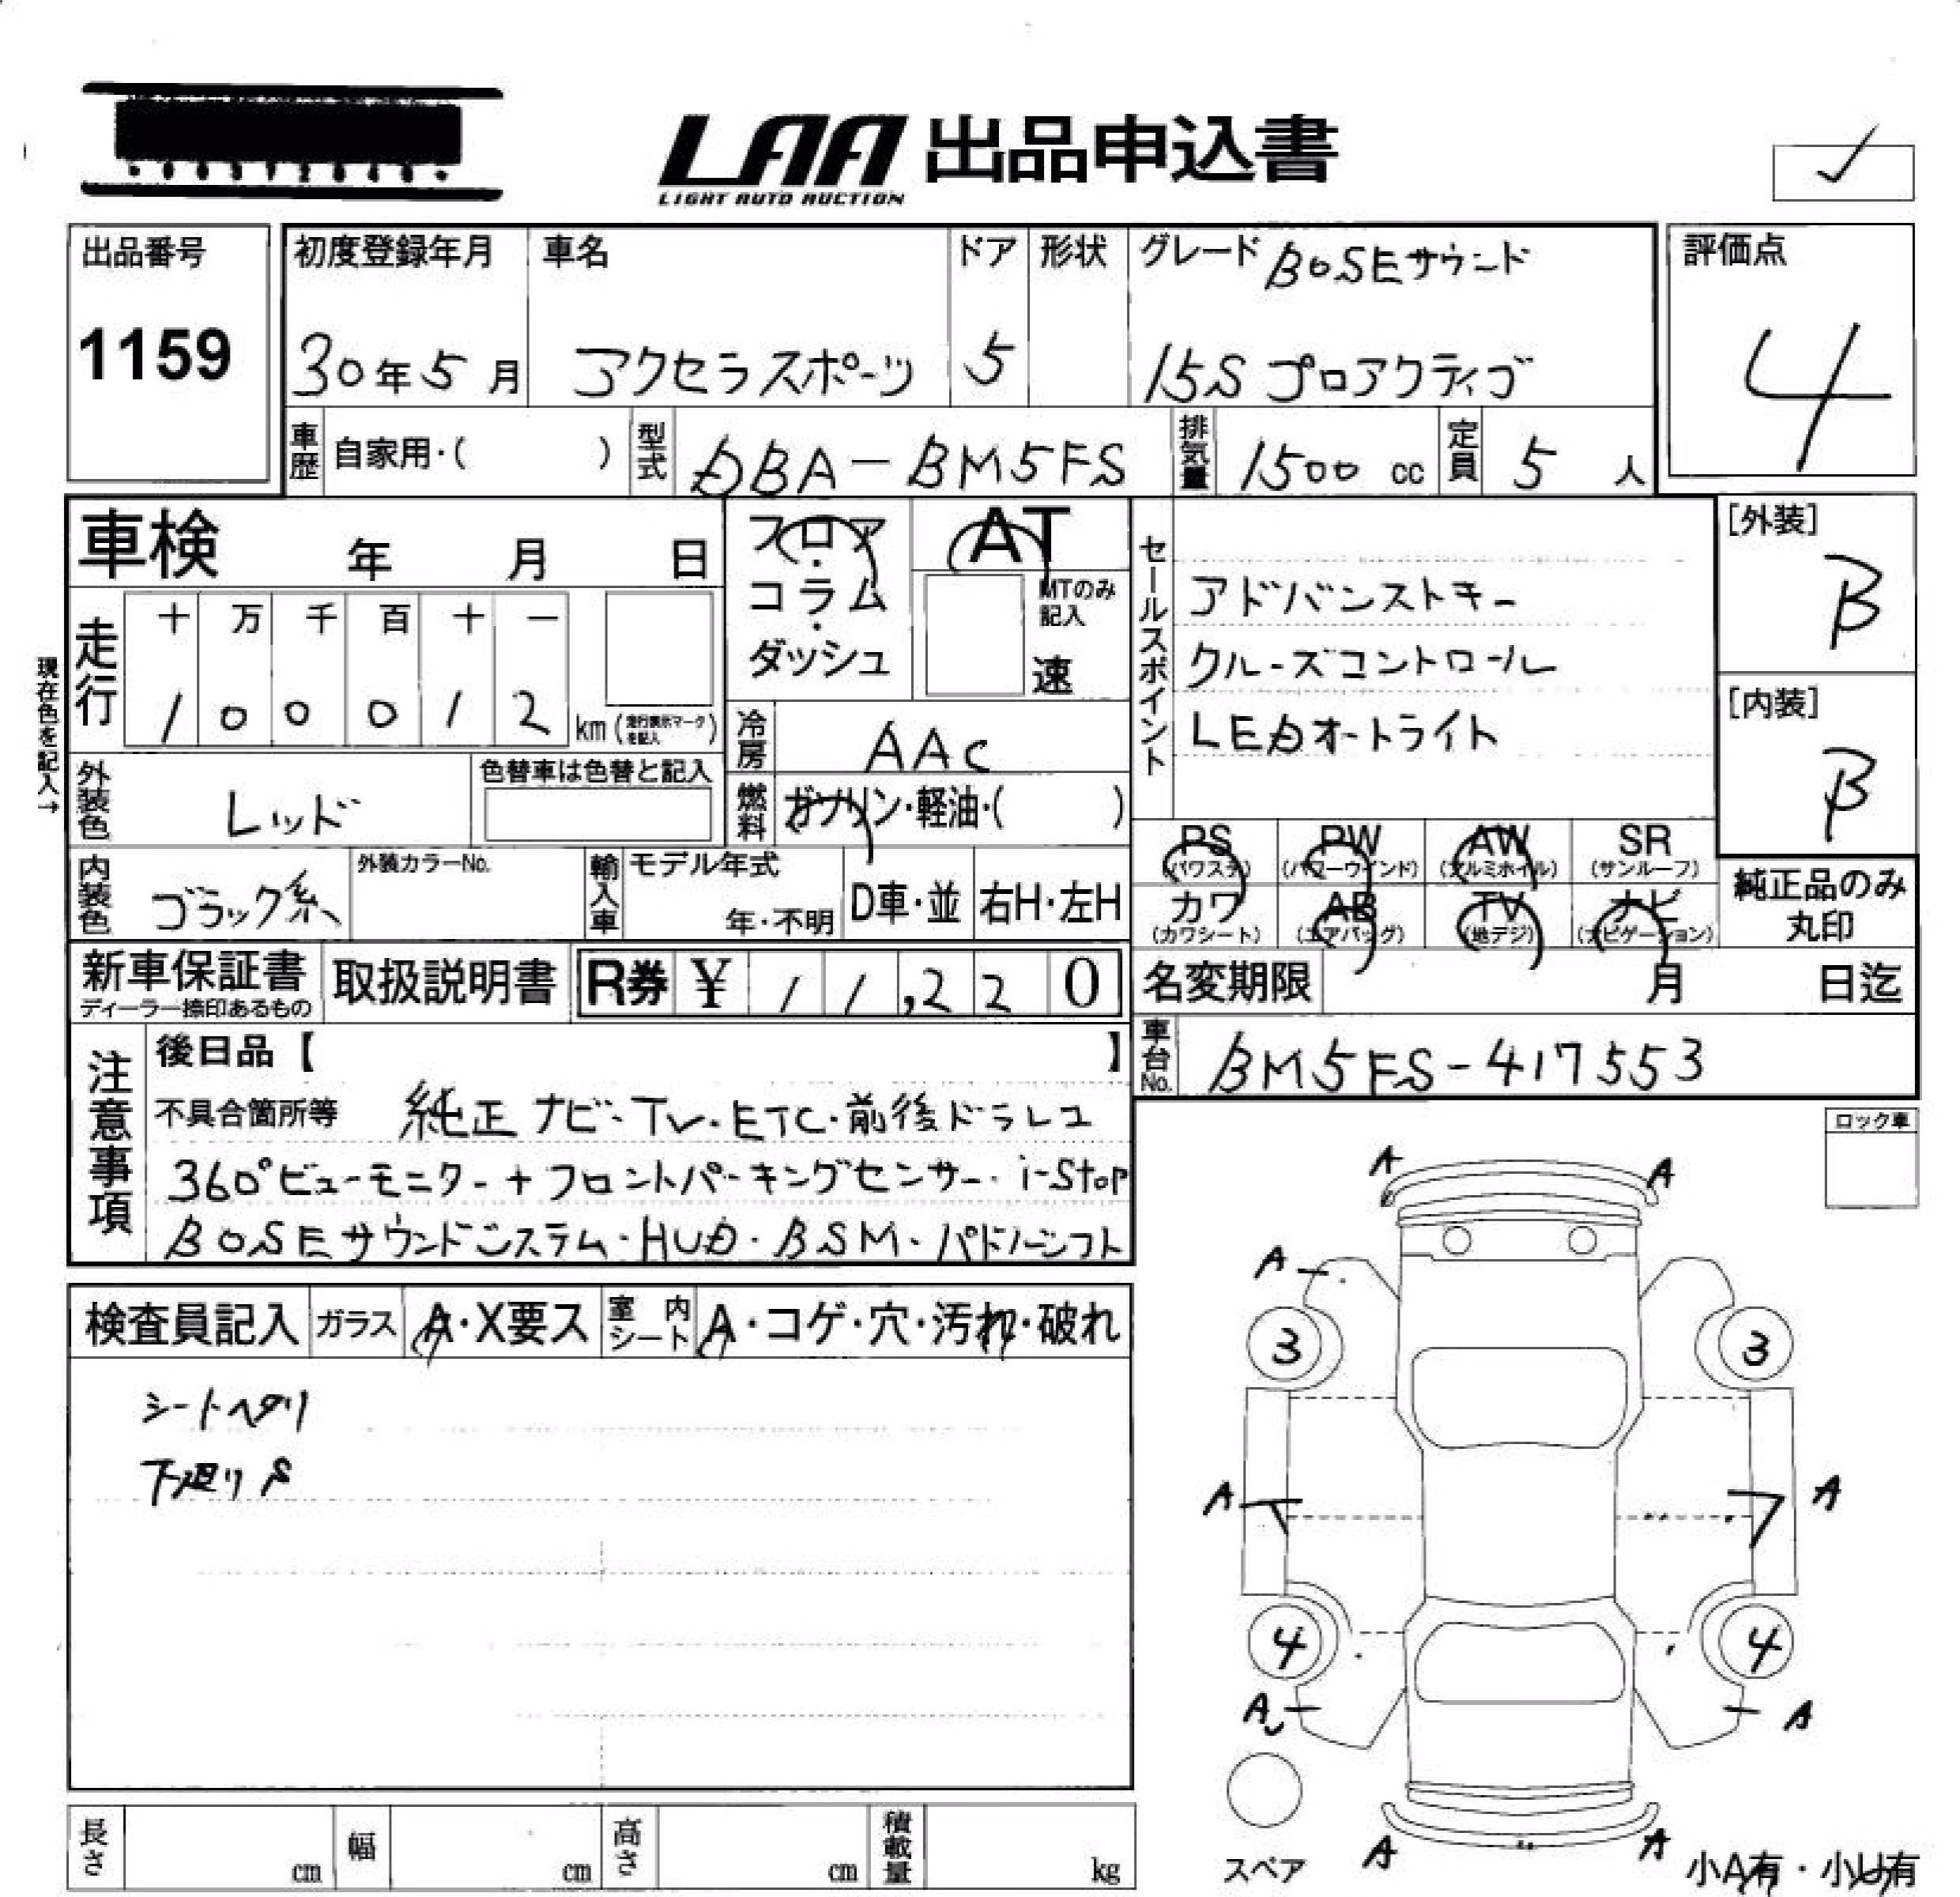 LAA 出品申込書
LIGHT AUTO AUCTION
✓
出品番号
1159
初度登録年月
30年5月
車名
アクセラスポーツ
ドア
5
形状
グレード BOSEサウンド
15S プロアクティブ
評価点
4
車歴 自家用・( )
型式 DBA-BM5FS
排気量 1500 cc
定員 5 人
車検 年 月 日
フロア・コラム・ダッシュ
AT
MTのみ記入
速
セールスポイント
アドバンストキー
クルーズコントロール
LEDオートライト
[外装]
B
[内装]
B
現在色を記入→
走行
十 万 千 百 十 一
1 0 0 0 1 2 km (走行表示マークを記入)
冷房 AAC
外装色 レッド
色替車は色替と記入
燃料 ガソリン・軽油・( )
PS (パワステ)
PW (パワーウインド)
AW (アルミホイル)
SR (サンルーフ)
カワ (カワシート)
AB (エアバッグ)
TV (地デジ)
ナビ (ナビゲーション)
純正品のみ丸印
内装色 ブラック系
外装カラーNo.
輸入車
モデル年式
年・不明
D車・並
右H・左H
新車保証書
ディーラー捺印あるもの
取扱説明書
R券 ¥ 11,220
名変期限 月 日迄
車台No. BM5FS-417553
注意事項
後日品【 】
不具合箇所等 純正ナビ・TV・ETC・前後ドラレコ
360°ビューモニター+フロントパーキングセンサー・i-Stop
BOSEサウンドシステム・HUD・BSM・パドルシフト
ロック車
検査員記入
ガラス A・X要ス
室内シート A・コゲ・穴・汚れ・破れ
シートヘタリ
下廻りS
A A
A
3 3
A A
4 4
A A
スペア
A A
小A有・小U有
長さ cm
幅 cm
高さ cm
積載量 kg